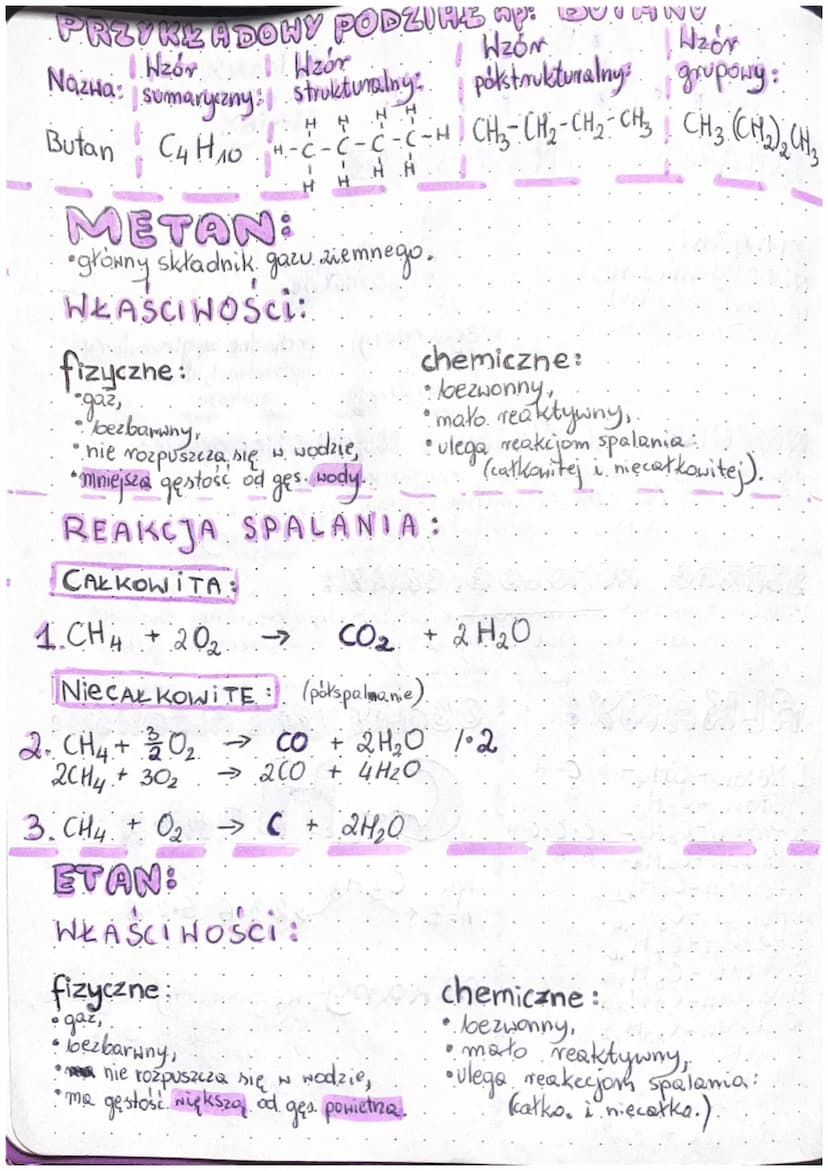 PRZYKŁADOWY PODZIAŁ np. BUTANU
Nazwa: Wzór sumaryczny: Wzór strukturalny: Wzór półstrukturalny: Wzór grupowy:
H H H H
Butan C4H10 H-C-C-C-C-H CH3-CH2-CH2-CH3 CH3(CH2)2CH3
H H H H
METAN:
•główny składnik gazu ziemnego.
WŁAŚCIWOŚCI:
fizyczne:
•gaz,
•bezbarwny,
•nie rozpuszcza się w wodzie,
•mniejsza gęstość od gęs. wody.
chemiczne:
•bezwonny,
•mało reaktywny,
•ulega reakcjom spalania
(całkowitej i niecałkowitej).
REAKCJA SPALANIA:
CAŁKOWITA:
1. CH4 + 2O2 → CO2 + 2H2O
NIECAŁKOWITE: (półspalnanie)
2. CH4 + 3/2 O2 → CO + 2H2O /•2
2CH4 + 3O2 → 2CO + 4H2O
3. CH4 + O2 → C + 2H2O
ETAN:
WŁAŚCIWOŚCI:
fizyczne:
•gaz,
•bezbarwny,
•nie rozpuszcza się w wodzie,
•ma gęstość większą od gęs. powietrza.
chemiczne:
•bezwonny,
•mało reaktywny,
•ulega reakecjom spalania:
(całko. i niecałko.)